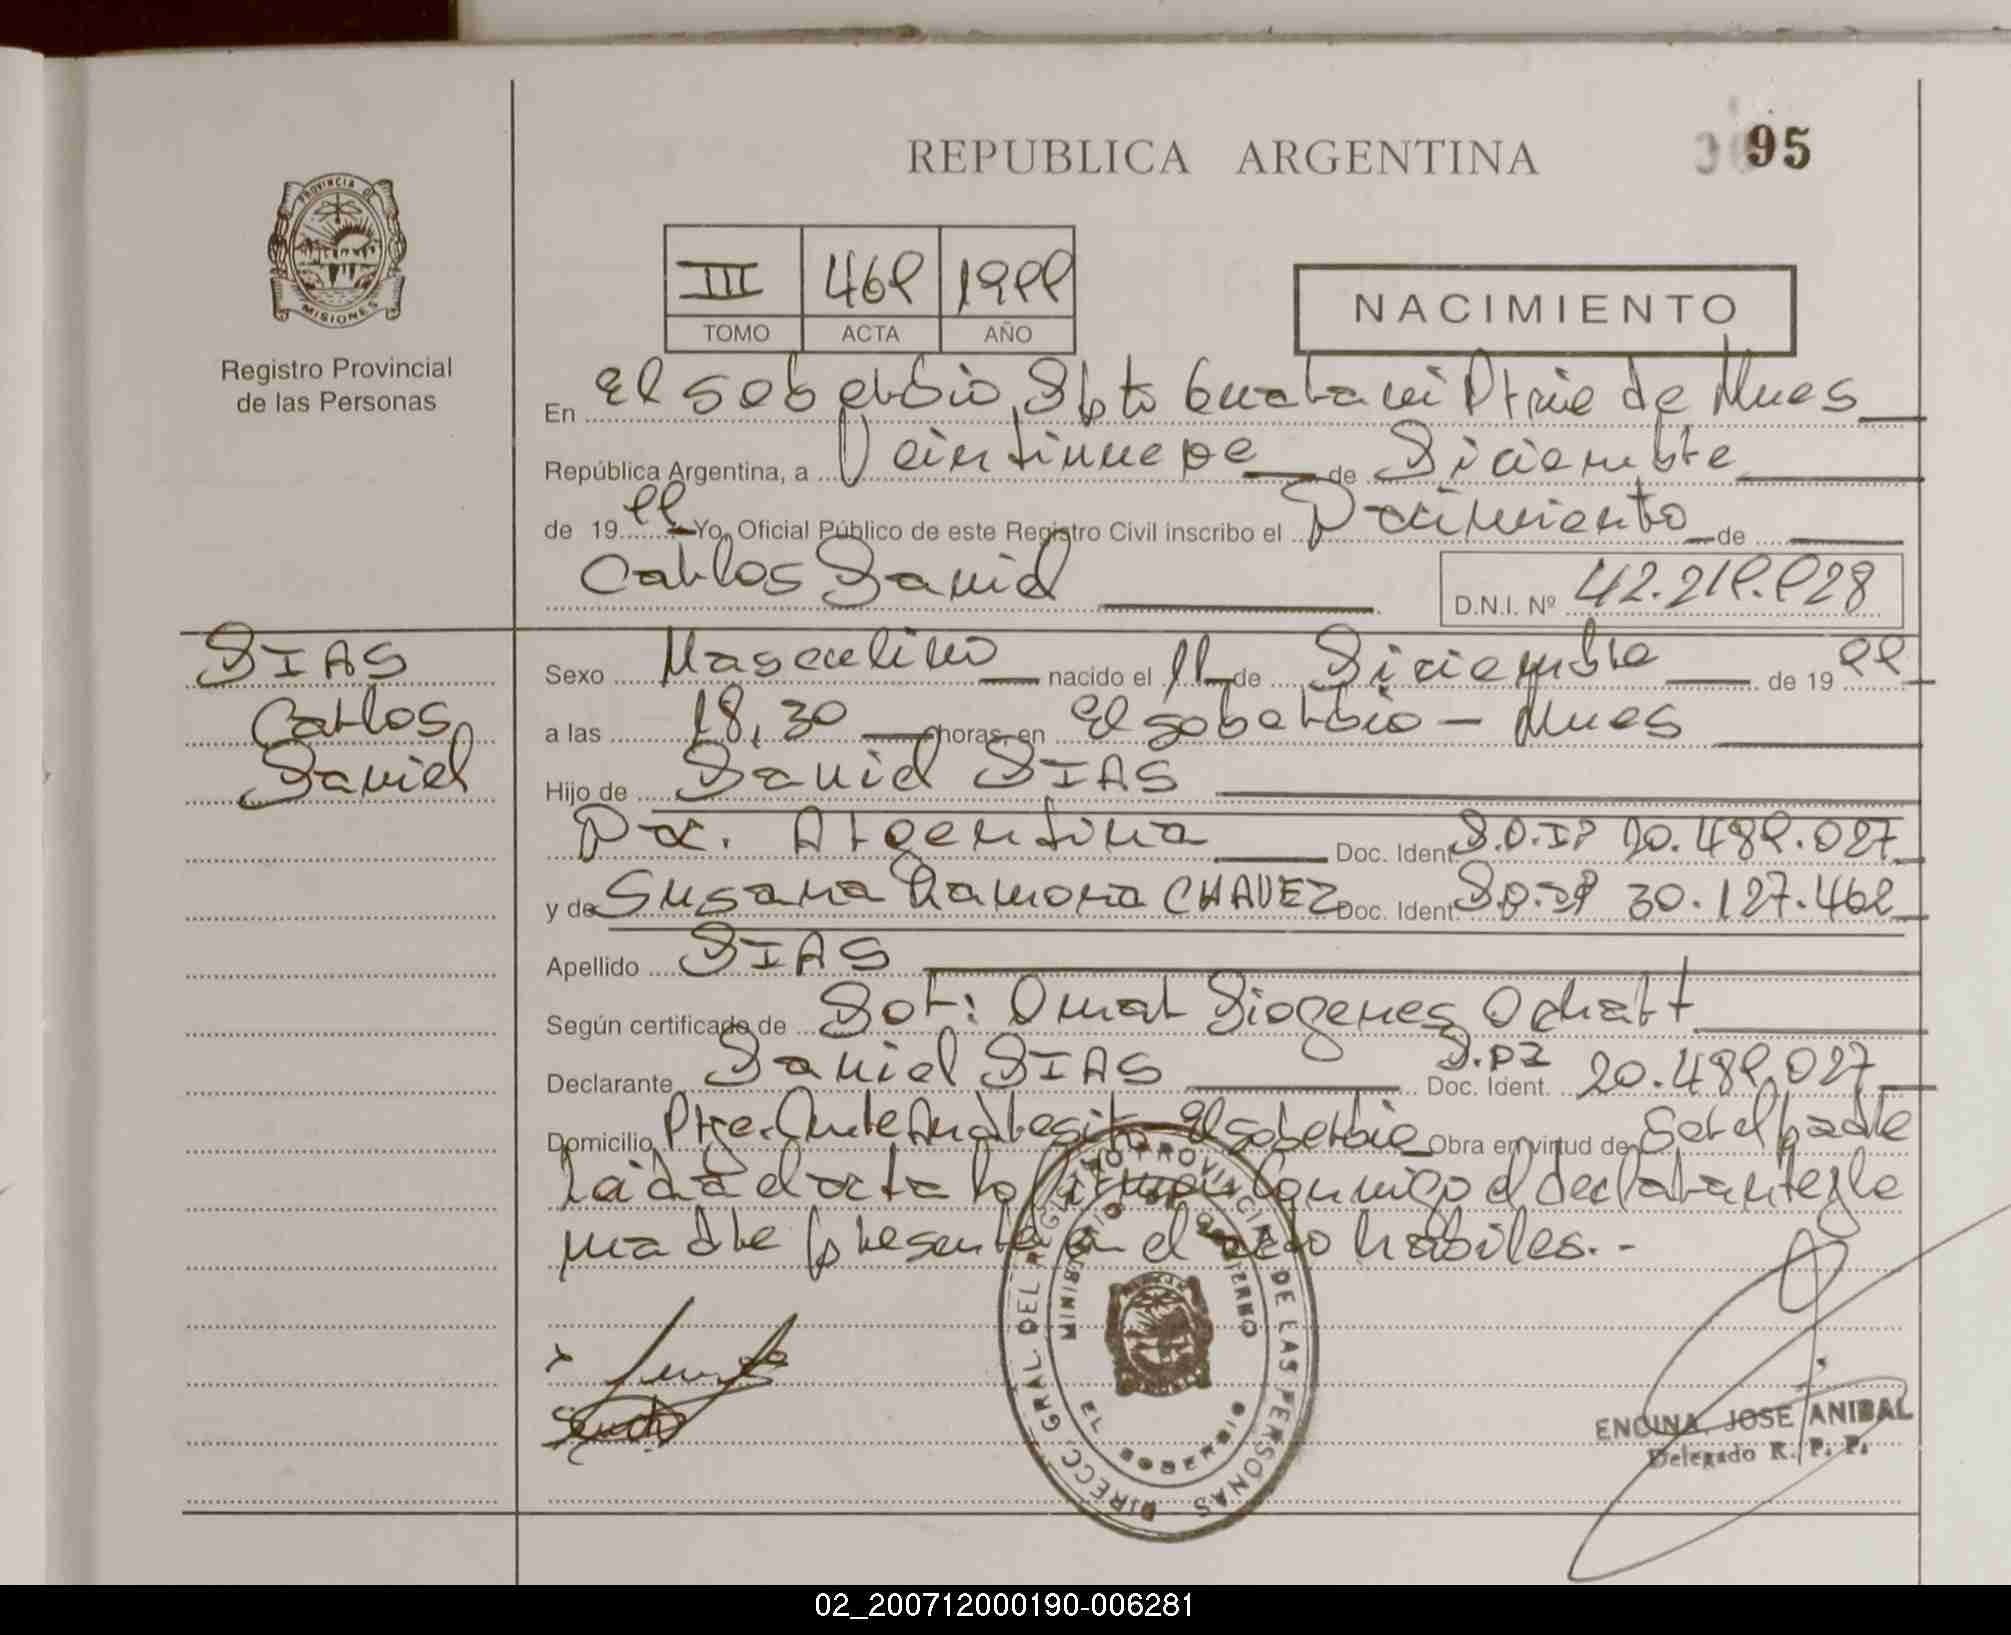 REPUBLICA ARGENTINA
95
PROVINCIA DE
MISIONES
Registro Provincial
de las Personas
III 469 1999
TOMO ACTA AÑO
NACIMIENTO
En El Soberbio, Dpto Guarani Pcia de Mnes
República Argentina, a Veintinueve de Diciembre
de 19 99 Yo, Oficial Público de este Registro Civil inscribo el Nacimiento de
Carlos Daniel
D.N.I. Nº 42.219.928
DIAS
Carlos
Daniel
Sexo Masculino nacido el 11 de Diciembre de 19 99
a las 18,30 horas, en El Soberbio - Mnes
Hijo de Daniel DIAS
Nac. Argentina Doc. Ident D.N.I Nº 20.489.027
y de Susana Ramona CHAVEZ Doc. Ident D.N.I Nº 30.127.462
Apellido DIAS
Según certificado de Dor: Omar Diogenes Ochatt
Declarante Daniel DIAS Doc. Ident. D.NI 20.489.027
Domicilio El Soberbio Obra en virtud de Ser el padre
Leida el acta la firman conmigo el declarante y la
madre presente en el acto habiles.-
DIRECC. GRAL. DEL REGISTRO PROVINCIAL DE LAS PERSONAS
MINISTERIO DE GOBIERNO
EL SOBERBIO
ENCINA, JOSE ANIBAL
Delegado R. P. P.
02_200712000190-006281